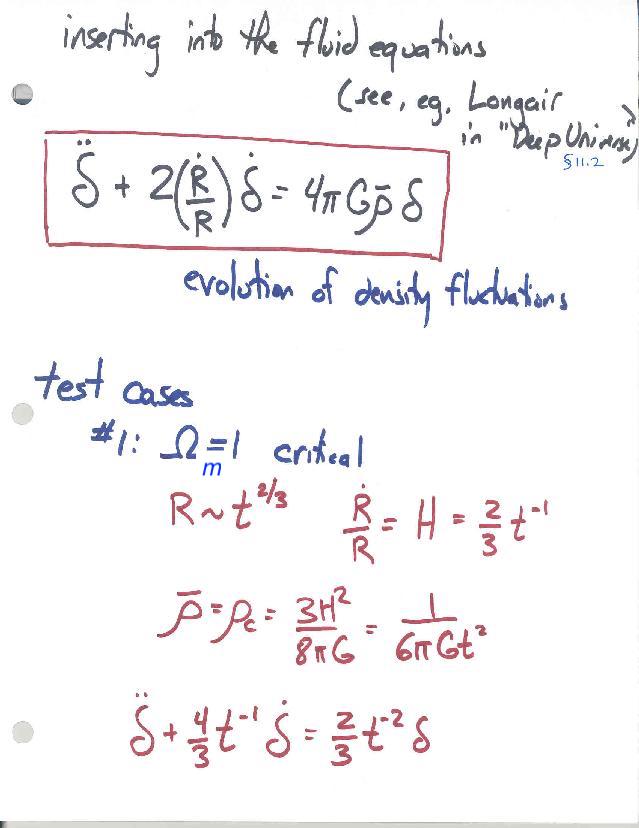 inserting into the fluid equations
(see, eg. Longair
in "Deep Universe")
§11.2
δ̈ + 2(Ṙ/R) δ̇ = 4πGρ̄ δ
evolution of density fluctuations
test cases
#1: Ωm=1 critical
R ~ t^2/3 Ṙ/R = H = 2/3 t^-1
ρ̄ = ρc = 3H²/8πG = 1/6πGt²
δ̈ + 4/3 t^-1 δ̇ = 2/3 t^-2 δ